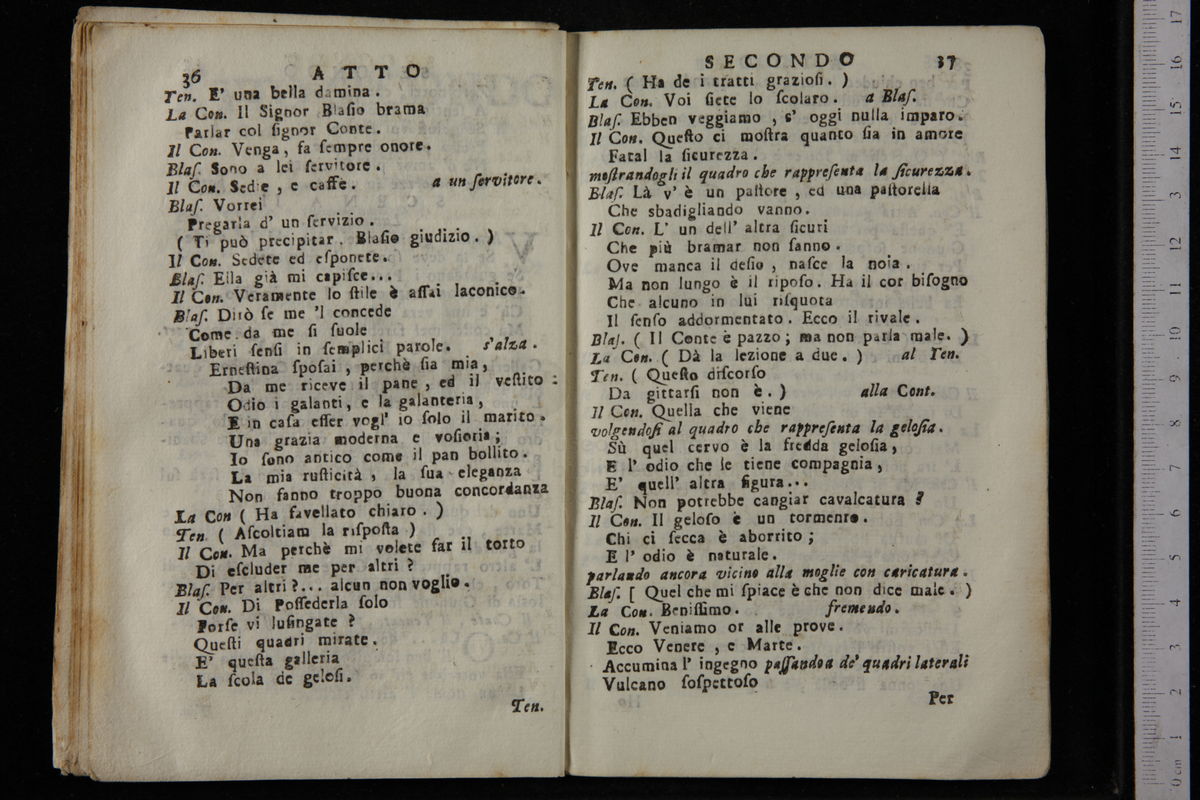 36 ATTO
Ten. E' una bella damina.
La Con. Il Signor Blaſio brama
Parlar col ſignor Conte.
Il Con. Venga, fa ſempre onore.
Blaſ. Sono a lei ſervitore.
Il Con. Sedie, e caffe. a un ſervitore.
Blaſ. Vorrei
Pregarla d' un ſervizio.
( Ti può precipitar. Blaſio giudizio. )
Il Con. Sedete ed eſponete.
Blaſ. Ella già mi capiſce...
Il Con. Veramente lo ſtile è aſſai laconico.
Blaſ. Dirò ſe me 'l concede
Come da me ſi ſuole
Liberi ſenſi in ſemplici parole. s'alza.
Erneſtina ſpoſai, perchè ſia mia,
Da me riceve il pane, ed il veſtito:
Odio i galanti, e la galanteria,
E in caſa eſſer vogl' io ſolo il marito.
Una grazia moderna e voſioria;
Io ſono antico come il pan bollito.
La mia ruſticità, la ſua eleganza
Non fanno troppo buona concordanza
La Con ( Ha favellato chiaro. )
Ten. ( Aſcoltiam la riſpoſta )
Il Con. Ma perchè mi volete far il torto
Di eſcluder me per altri?
Blaſ. Per altri?... alcun non voglio.
Il Con. Di Poſſederla ſolo
Forſe vi luſingate?
Queſti quadri mirate.
E' queſta galleria
La ſcola de geloſi.
Ten.
SECONDO 37
Ten. ( Ha de i tratti grazioſi. )
La Con. Voi ſiete lo ſcolaro. a Blaſ.
Blaſ. Ebben veggiamo, s' oggi nulla imparo.
Il Con. Queſto ci moſtra quanto ſia in amore
Fatal la ſicurezza.
moſtrandogli il quadro che rappreſenta la ſicurezza.
Blaſ. Là v' è un paſtore, ed una paſtorella
Che sbadigliando vanno.
Il Con. L' un dell' altra ſicuri
Che più bramar non ſanno.
Ove manca il deſio, naſce la noia.
Ma non lungo è il ripoſo. Ha il cor biſogno
Che alcuno in lui riſquota
Il ſenſo addormentato. Ecco il rivale.
Blaſ. ( Il Conte è pazzo; ma non parla male. )
La Con. ( Dà la lezione a due. ) al Ten.
Ten. ( Queſto diſcorſo
Da gittarſi non è. ) alla Cont.
Il Con. Quella che viene
volgendoſi al quadro che rappreſenta la geloſia.
Sù quel cervo è la fredda geloſia,
E l' odio che le tiene compagnia,
E' quell' altra figura...
Blaſ. Non potrebbe cangiar cavalcatura?
Il Con. Il geloſo è un tormento.
Chi ci ſecca è aborrito;
E l' odio è naturale.
parlando ancora vicino alla moglie con caricatura.
Blaſ. [ Quel che mi ſpiace è che non dice male. )
La Con. Beniſſimo. fremendo.
Il Con. Veniamo or alle prove.
Ecco Venere, e Marte.
Accumina l' ingegno paſſando a de' quadri laterali
Vulcano ſoſpettoſo
Per
0 cm 1 2 3 4 5 6 7 8 9 10 11 12 13 14 15 16 17